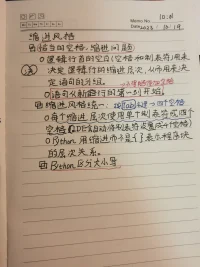 10:01
Memo No.
Date 2023 . 10 . 19
缩进风格
恰当的空格,缩进问题
逻辑行首的空白(空格和制表符)用来
决定逻辑行的缩进层次,从而用来决
定语句的分组。
语句从新逻辑行的第一列开始。
缩进风格统一:
每个缩进层次使用单个制表符或四个
空格(IDE会自动将制表符设置成4个空格)
Python用缩进而不是{}表示程序块
的层次关系。
Python区分大小写